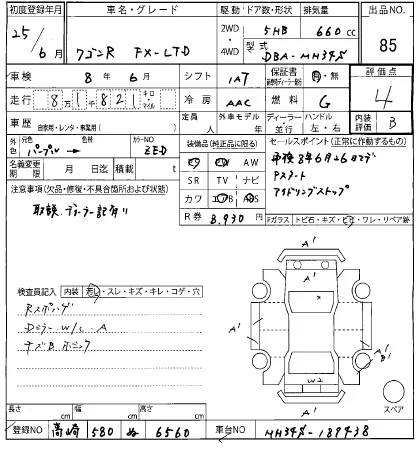 初度登録年月 車名・グレード 駆動 ドア数・形状 排気量 出品NO.
25/6月 ワゴンR FX-LTD 2WD 4WD 5HB 660cc 85
型式 DBA-MH34S
車検 8年 6月 シフト IAT 保証書 有・無 評価点
走行 8万1821 キロ マイル 冷房 AAC 燃料 G 4
車歴 自家用・レンタ・事業用( ) 定員 人 外車モデル 年 ディーラー・並行 ハンドル 左・右 内装評価 B
外色 元色 パープル → 色替 カラーNO ZED
装備品(純正品に限る) セールスポイント(正常に作動するもの)
名義変更期限 月 日迄 積載 t
SR TV ナビ
カワ
車検8年6月26日マデ
Pスタート
アイドリングストップ
注意事項(欠品・修復・不具合箇所および状態)
取説、ディーラー記有り
R券 8,930円
Fガラス トビ石・キズ・ヒビ・ワレ・リペア跡
検査員記入 内装 若し・スレ・キズ・キレ・コゲ・穴
A' A' A' A' B' W2 A'
スペア
長さ cm 幅 cm 高さ cm
登録NO 高崎 580 ぬ 6560 車台NO MH34S-189438